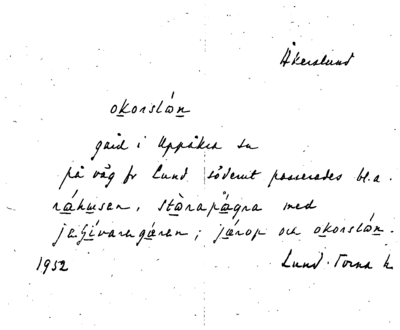 Åkerslund
okorslån
gård i Uppåkra sn
på väg fr Lund söderut passerades bl.a.
råhusen, stårapågra med
jäşívaregåren; jårop och okorslån.
1952 Lund. Torna h